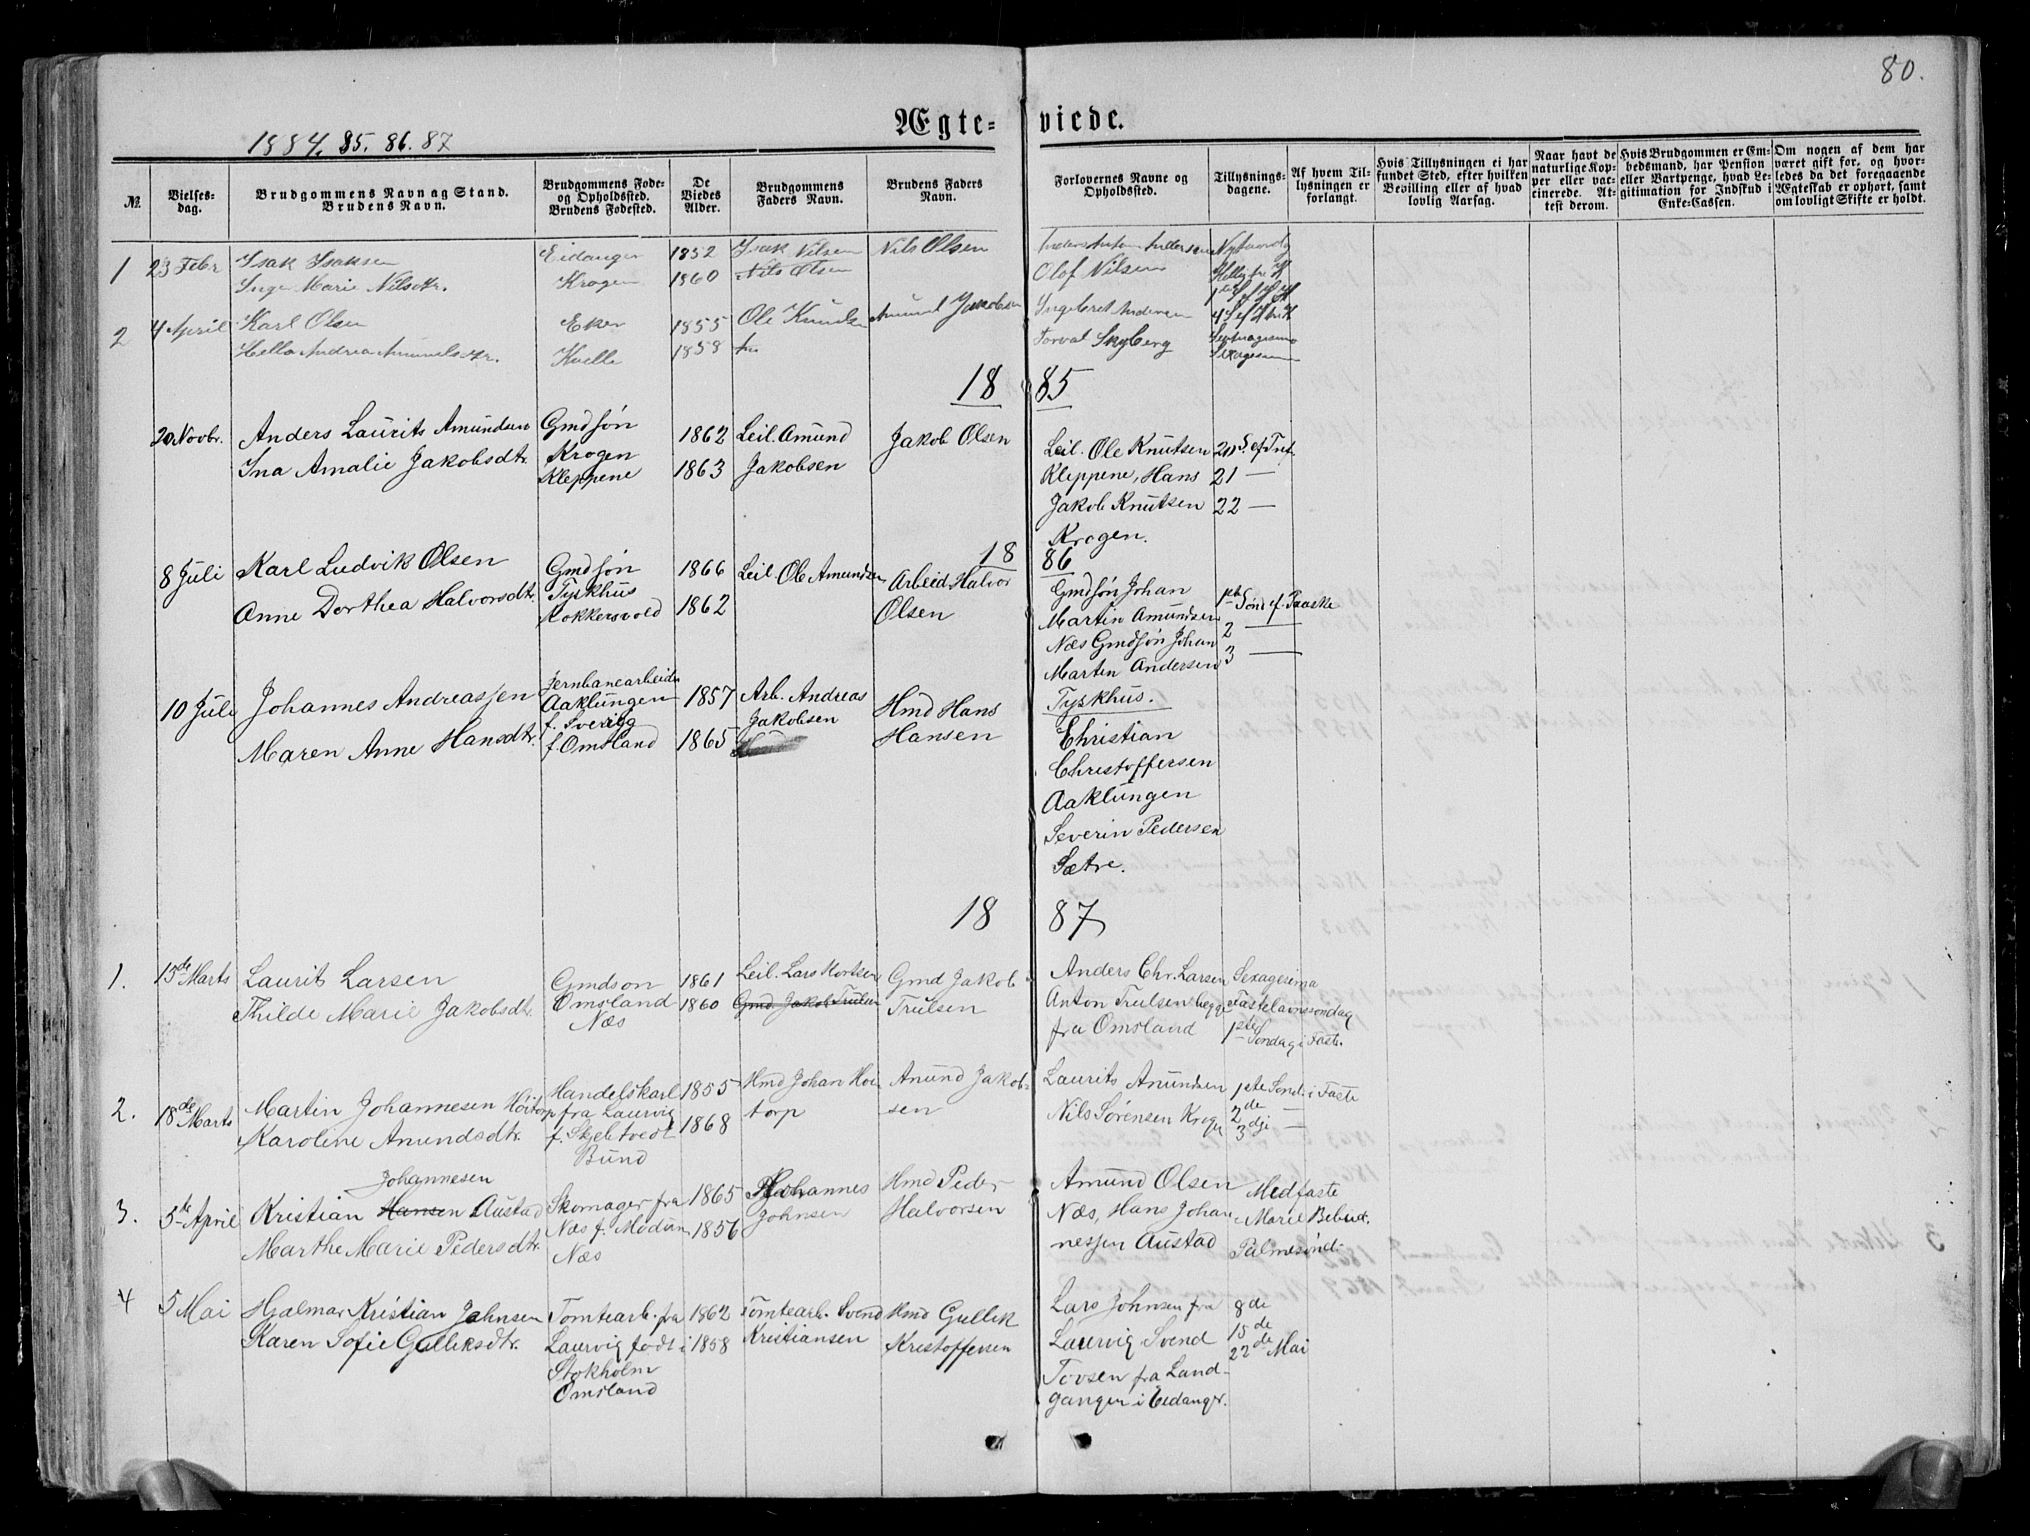 80.
Ægte- viede.
1884. 85. 86. 87
№.
Vielses-
dag.
Brudgommens Navn og Stand.
Brudens Navn.
Brudgommens Føde-
og Opholdssted.
Brudens Fødested.
De
Viedes
Alder.
Brudgommens
Faders Navn.
Brudens Faders
Navn.
Forlovernes Navne og
Opholdssted.
Tillysnings-
dagene.
Af hvem Til-
lysningen er
forlangt.
Hvis Tillysningen ei har
fundet Sted, efter hvilken
Bevilling eller af hvad
lovlig Aarsag.
Naar havt de
naturlige Kop-
per eller vac-
cinerede. At-
test derom.
Hvis Brudgommen er Em-
bedsmand, har Pension
eller Vartpenge, hvad Le-
gitimation for Indskud i
Enke-Cassen.
Om nogen af dem har
været gift før, og hvor-
ledes da det foregaaende
Ægteskab er ophørt, samt
om lovligt Skifte er holdt.
1 23 Febr Isak Isaksen Eidanger 1852 Isak Nilsen Nils Olsen Anders Anton Andersen
Inge Marie Nilsdtr. Krogen 1860 Nils Olsen Olof Nilsen
2 4 April Karl Olsen Eker 1855 Ole Knudsen Amund Jakobsen Ingebret Andersen
Hella Andrea Amundsdtr. Kvelle 1858 Torval Skyberg Septuagesima
Sexagesima
18 85
20 Novbr. Anders Laurits Amundsen Gmdsøn 1862 Leil. Amund Jakob Olsen Leil. Ole Knutsen 20 S. ef. Tref.
Ina Amalie Jakobsdtr. Krogen 1863 Jakobsen Kleppene, Hans 21 —
Kleppene Jakob Knutsen 22 —
Krogen.
18 86
8 Juli Karl Ludvik Olsen Gmdsøn 1866 Leil. Ole Amundsen Arbeid Halvor Gmdsøn Johan 1ste Sønd. ef. Paaske
Anne Dorthea Halvorsdtr. Tyskhus 1862 Olsen Martin Amundsen 2 —
Kokkersvold Næs Gmdsøn Johan 3 —
Marten Andersen
Tyskhus.
10 Juli Johannes Andreassen Jernbanearbeider 1857 Arb. Andreas Hmd Hans Christian
Aaklungen Jakobsen Hansen Christoffersen
f. Sverige Aaklungen
Maren Anne Hansdtr. f. Omsland 1865 Severin Pedersen
Sætre.
18 87
1. 15de Marts Laurit Larsen Gmdson 1861 Leil. Lars Gmd Jakob Anders Chr. Larsen Sexagesima
Thilde Marie Jakobsdtr. Omsland 1860 Gmd. Jakob Trulsen Trulsen Anton Trulsen begge Fastelavnssøndag
Næs fra Omsland 1ste Søndag i Faste.
2. 18de Marts Martin Johannesen Høitorp Handelskarl 1855 Hmd Johan Høi- Anund Jakob- Laurits Anundsen 1ste Sond. i Faste
fra Laurvig torp sen Nils Sørensen Krogen 2de —
Karoline Anundsdtr. f. Skjeltvedt 1868 3dji —
Bund
Johannesen
3. 5te April Kristian Hansen Austad Skomager fra 1865 Johannes Hmd Peder Amund Olsen Midfaste
Næs f. Modum Johnsen Halvorsen Næs, Hans Johan- Marie Bebud.
Marthe Marie Pedersdtr. Næs 1856 nessen Austad Palmesønd.
4 5 Mai Hjalmar Kristian Johnsen Tomtearb. fra 1862 Tomtearb. Svend Hmd Gullik Lars Johnsen fra 8de
Karen Sofie Gulliksdtr. Laurvig født i 1858 Kristiansen Kristoffersen Laurvig Svend 15de
Stokholm Tovsen fra Land- 22de Mai
Omsland gangen i Eidanger.